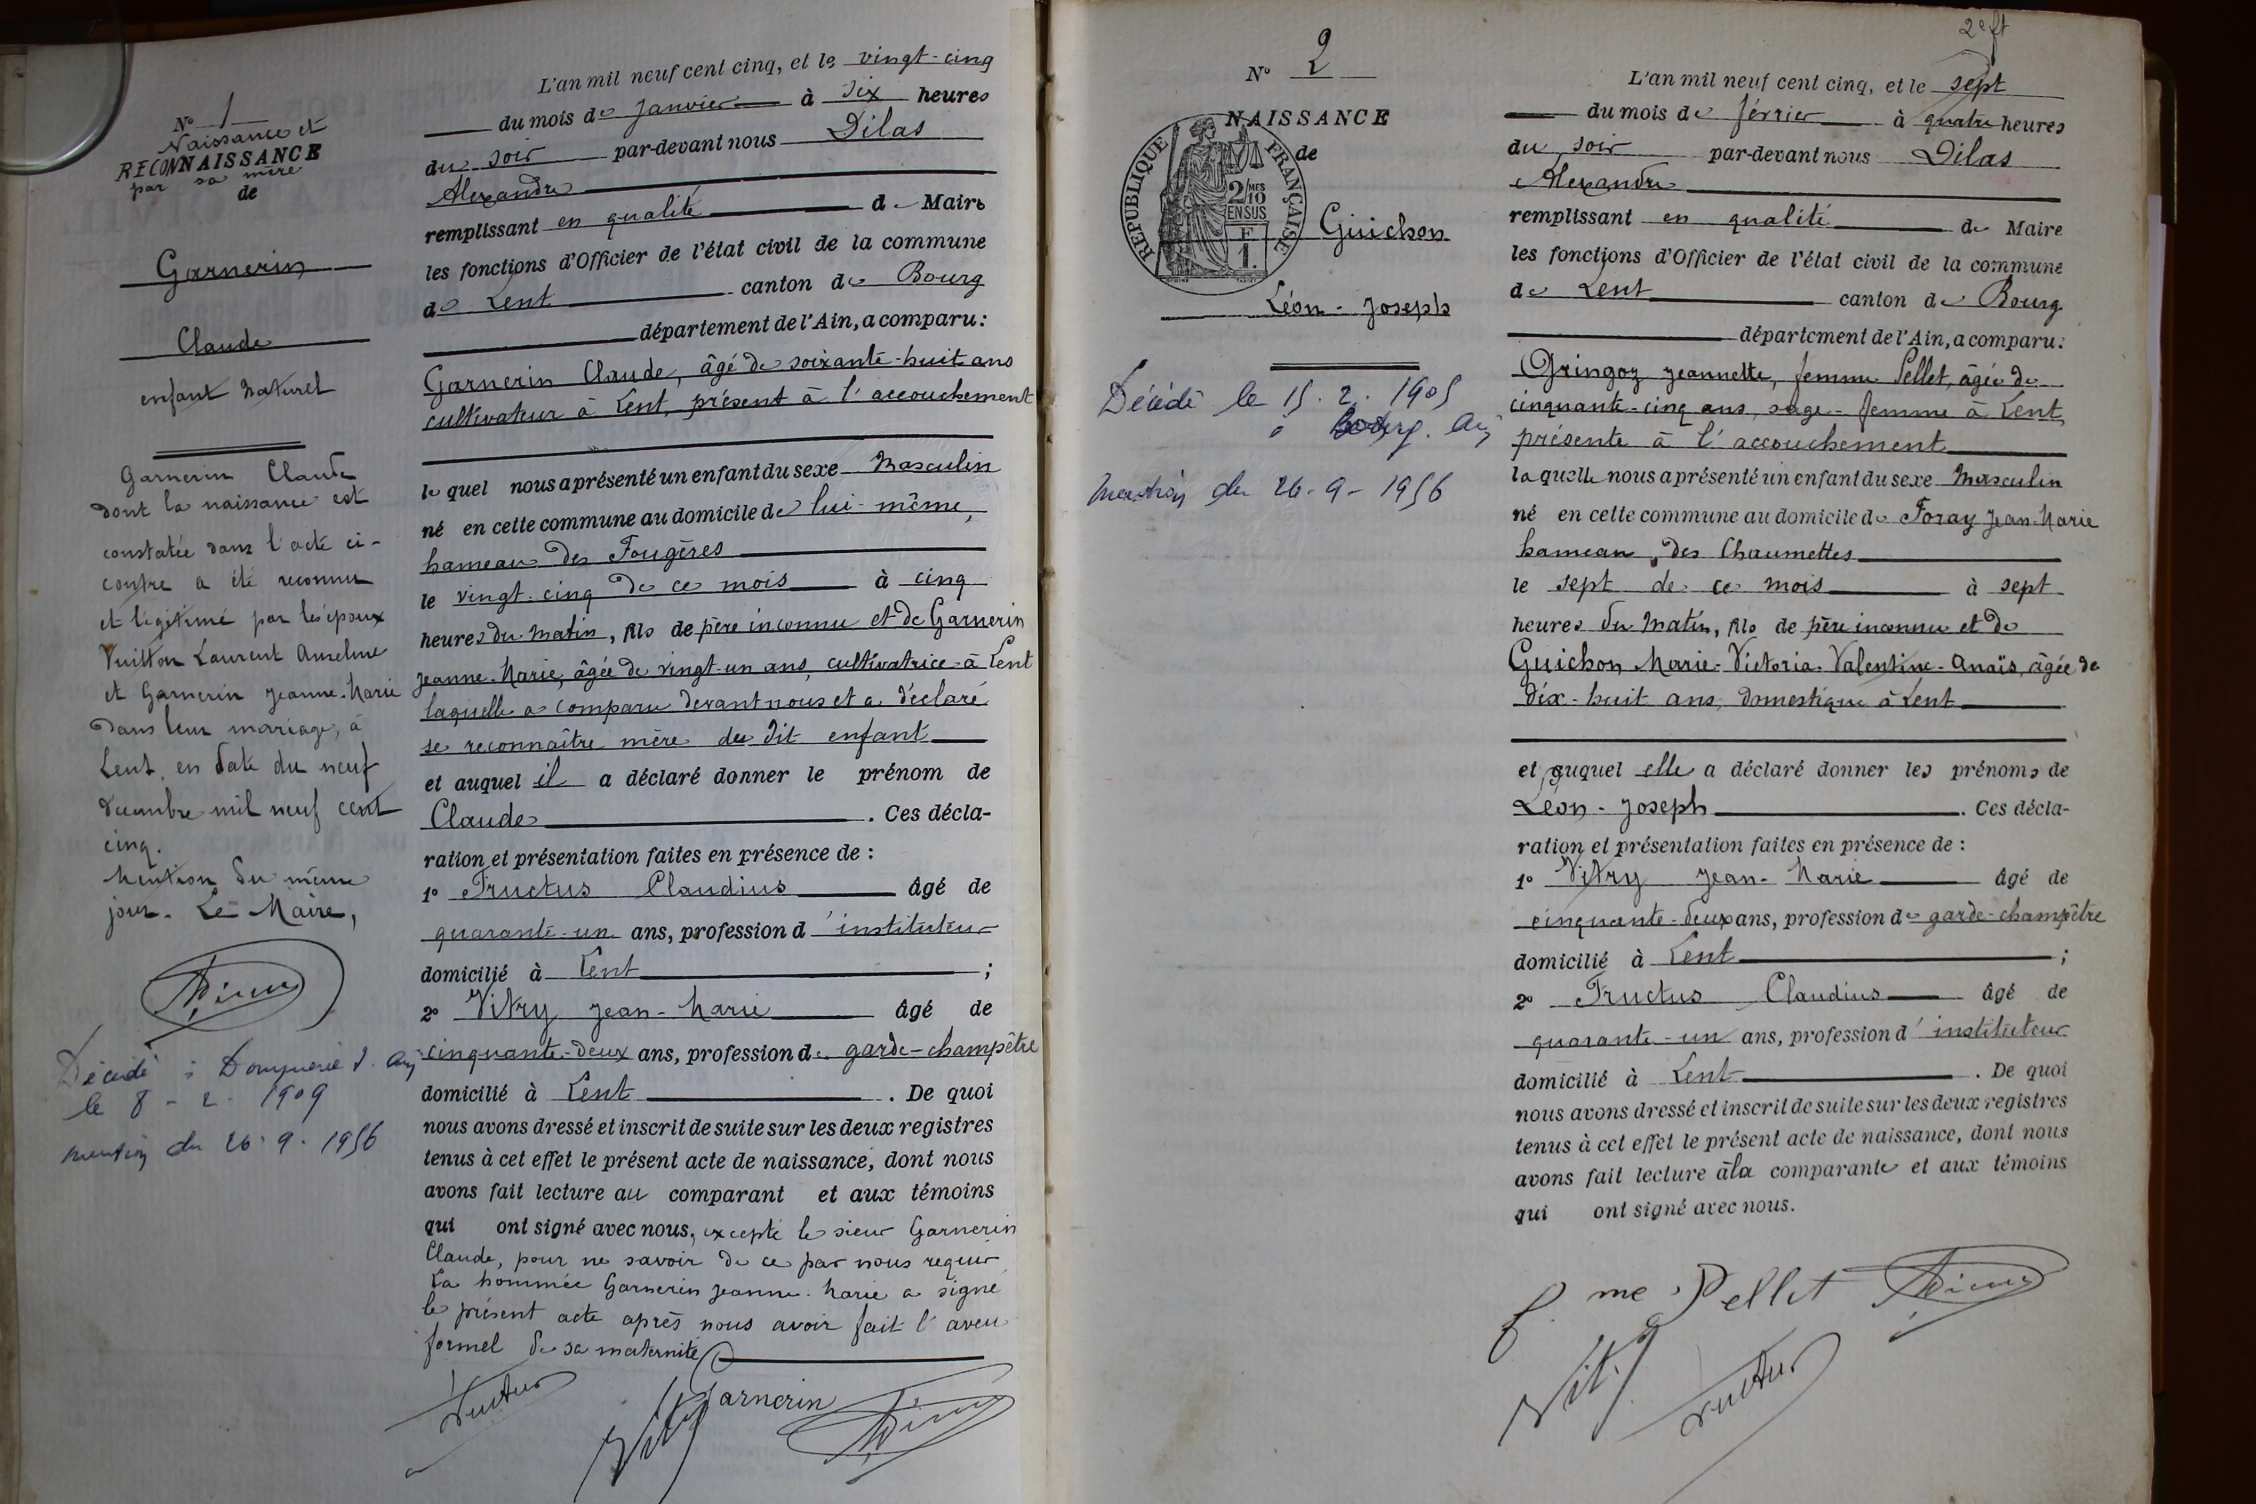 N° 1
Naissance et
RECONNAISSANCE
par sa mère
de
Garnerin
Claude
enfant naturel
Garnerin Claude
dont la naissance est
constatée dans l'acte ci-
contre a été reconnu
et légitimé par les époux
Vuitton Laurent Anselme
et Garnerin Jeanne-Marie
dans leur mariage, à
Lent, en date du neuf
décembre mil neuf cent
cinq.
Mention du même
jour. Le Maire,
Décédé à
le 8 - 2 - 1909
mention du 26. 9. 1956
L'an mil neuf cent cinq, et le vingt-cinq
du mois de Janvier à six heures
du soir par-devant nous Dilas
Alexandre
remplissant en qualité de Maire
les fonctions d'Officier de l'état civil de la commune
de Lent canton de Bourg
département de l'Ain, a comparu :
Garnerin Claude, âgé de soixante-huit ans
cultivateur à Lent, présent à l'accouchement
lequel nous a présenté un enfant du sexe Masculin
né en cette commune au domicile de lui-même,
hameau des Fougères
le vingt-cinq de ce mois à cinq
heures du matin, fils de père inconnu et de Garnerin
Jeanne-Marie, âgée de vingt-un ans, cultivatrice à Lent
laquelle a comparu devant nous et a déclaré
se reconnaître mère du dit enfant
et auquel il a déclaré donner le prénom de
Claude . Ces décla-
ration et présentation faites en présence de :
1° Fructus Claudius âgé de
quarante-un ans, profession d'instituteur
domicilié à Lent ;
2° Vitry Jean-Marie âgé de
cinquante-deux ans, profession de garde-champêtre
domicilié à Lent . De quoi
nous avons dressé et inscrit de suite sur les deux registres
tenus à cet effet le présent acte de naissance, dont nous
avons fait lecture au comparant et aux témoins
qui ont signé avec nous, excepté le sieur Garnerin
Claude, pour ne savoir de ce par nous requis
La nommée Garnerin Jeanne-Marie a signé
le présent acte après nous avoir fait l'aveu
formel de sa maternité
Fructus
Vitry
J Garnerin
Dilas
2e ft
N° 2
NAISSANCE
de
REPUBLIQUE FRANÇAISE
2/MES
10
EN SUS
F
1.
Guichon
Léon-Joseph
Décédé le 15. 2. 1905
à Bourg. Ain
mention du 26-9-1956
L'an mil neuf cent cinq, et le sept
du mois de février à quatre heures
du soir par-devant nous Dilas
Alexandre
remplissant en qualité de Maire
les fonctions d'Officier de l'état civil de la commune
de Lent canton de Bourg
département de l'Ain, a comparu :
Gringoz Jeannette, femme Pellet, âgée de
cinquante-cinq ans, sage-femme à Lent,
présente à l'accouchement
laquelle nous a présenté un enfant du sexe Masculin
né en cette commune au domicile de Foray Jean-Marie
hameau des Chaumettes
le sept de ce mois à sept
heures du matin, fils de père inconnu et de
Guichon Marie-Victoria-Valentine-Anaïs, âgée de
dix-huit ans, domestique à Lent
et auquel elle a déclaré donner les prénoms de
Léon-Joseph . Ces décla-
ration et présentation faites en présence de :
1° Vitry Jean-Marie âgé de
cinquante-deux ans, profession de garde-champêtre
domicilié à Lent ;
2° Fructus Claudius âgé de
quarante-un ans, profession d'instituteur
domicilié à Lent . De quoi
nous avons dressé et inscrit de suite sur les deux registres
tenus à cet effet le présent acte de naissance, dont nous
avons fait lecture à la comparante et aux témoins
qui ont signé avec nous.
f. me Pellet
Dilas
Vitry
Fructus